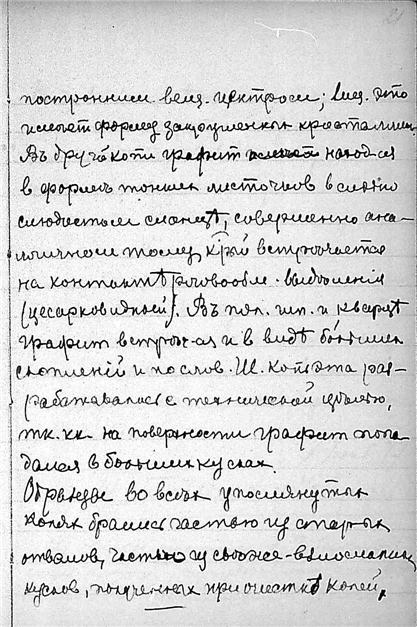 посторонним вещ. центром; Лиц. это
имеет форму закрученных кристаллик.
Въ другой копи графит находился
в форме тонких листочков в
слюдистом сланцѣ, совершенно ана-
логичном тому, крый встречается
на контактѣ роговообм. выделенія
(цесарковидной). Въ пол. шп. и кварцѣ
графит встреч-ся и в видѣ больших
скоплений и по слов. Ш. копь эта раз-
рабатывалась с технической цѣлью,
тк. кк. на поверхности графит попа-
дался в больших кусках.
Образцы во всех упомянутых
копях брались частью из старых
отвалов, частью из свеже-выломанных
кусков, полученных при очисткѣ копей,